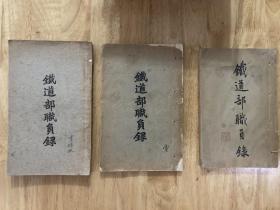 鐵道部職員錄
鐵道部職員錄
鐵道部職員錄